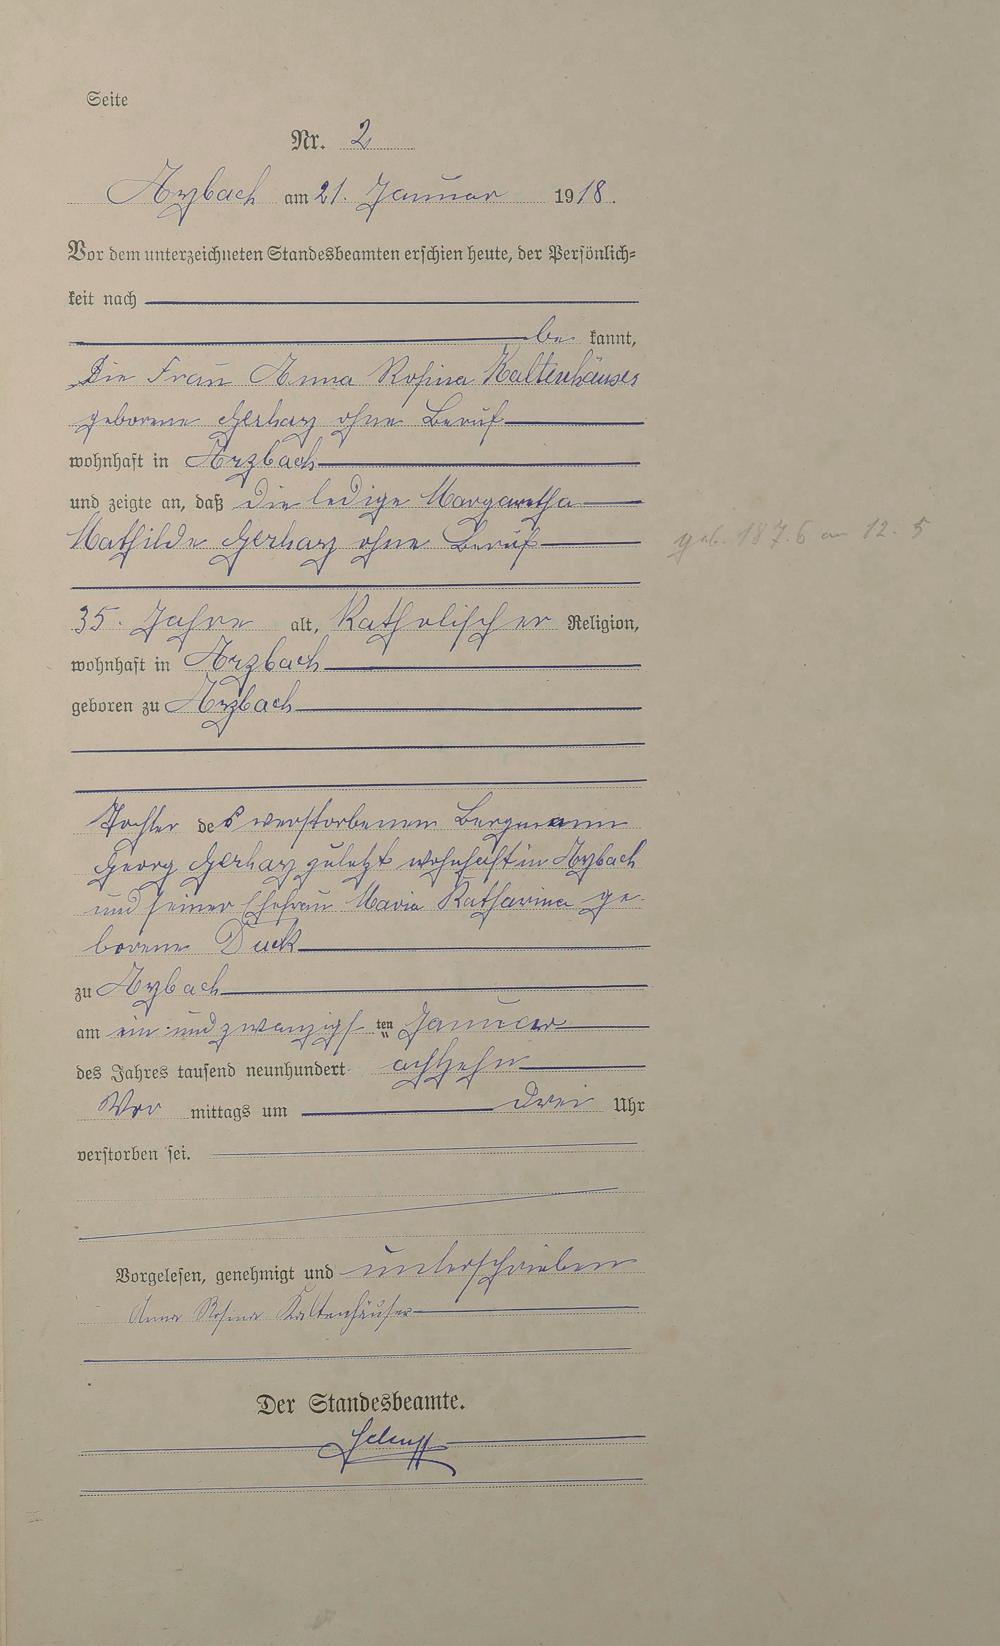 Seite
Nr. 2
Arzbach am 21. Januar 1918.
Vor dem unterzeichneten Standesbeamten erschien heute, der Persönlich=
keit nach
be kannt,
Die Frau Anna Rosina Kaltenhäuser
geborene Gerharz ohne Beruf
wohnhaft in Arzbach
und zeigte an, daß die ledige Margaretha
Mathilde Gerharz ohne Beruf
geb. 1876 am 12. 5
35. Jahre alt, Katholischer Religion,
wohnhaft in Arzbach
geboren zu Arzbach
Tochter des verstorbenen Bergmann
Georg Gerharz zuletzt wohnhaft in Arzbach
und seiner Ehefrau Maria Katharina ge-
borene Duck
zu Arzbach
am ein und zwanzigs ten Januar
des Jahres tausend neunhundert achtzehn
Vor mittags um drei Uhr
verstorben sei.
Vorgelesen, genehmigt und unterschrieben
Anna Rosina Kaltenhäuser
Der Standesbeamte.